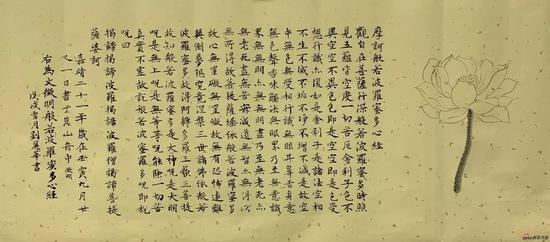 摩訶般若波羅蜜多心經
觀自在菩薩行深般若波羅蜜多時照
見五蘊皆空度一切苦厄舍利子色不
異空空不異色色即是空空即是色受
想行識亦復如是舍利子是諸法空相
不生不滅不垢不淨不增不減是故空
中無色無受想行識無眼耳鼻舌身意
無色聲香味觸法無眼界乃至無意識
界無無明亦無無明盡乃至無老死亦
無老死盡無苦集滅道無智亦無得以
無所得故菩提薩埵依般若波羅蜜多
故心無罣礙無罣礙故無有恐怖遠離
顛倒夢想究竟涅槃三世諸佛依般若
波羅蜜多故得阿耨多羅三藐三菩提
故知般若波羅蜜多是大神呪是大明
呪是無上呪是無等等呪能除一切苦
真實不虛故說般若波羅蜜多呪即說
呪曰
揭諦揭諦波羅揭諦波羅僧揭諦菩提
薩婆訶
嘉靖二十一年歲在壬寅九月廿
又一日書于崑山舟中 徵明
右為文徵明般若波羅蜜多心經
戊戌雪月劉麗華書